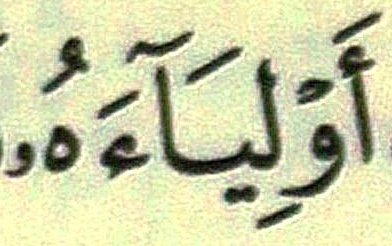 أَوْلِيَآءَهُۥ